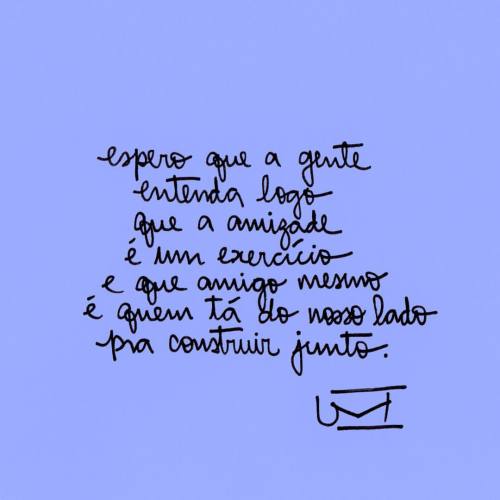 espero que a gente
entenda logo
que a amizade
é um exercício
e que amigo mesmo
é quem tá do nosso lado
pra construir junto.